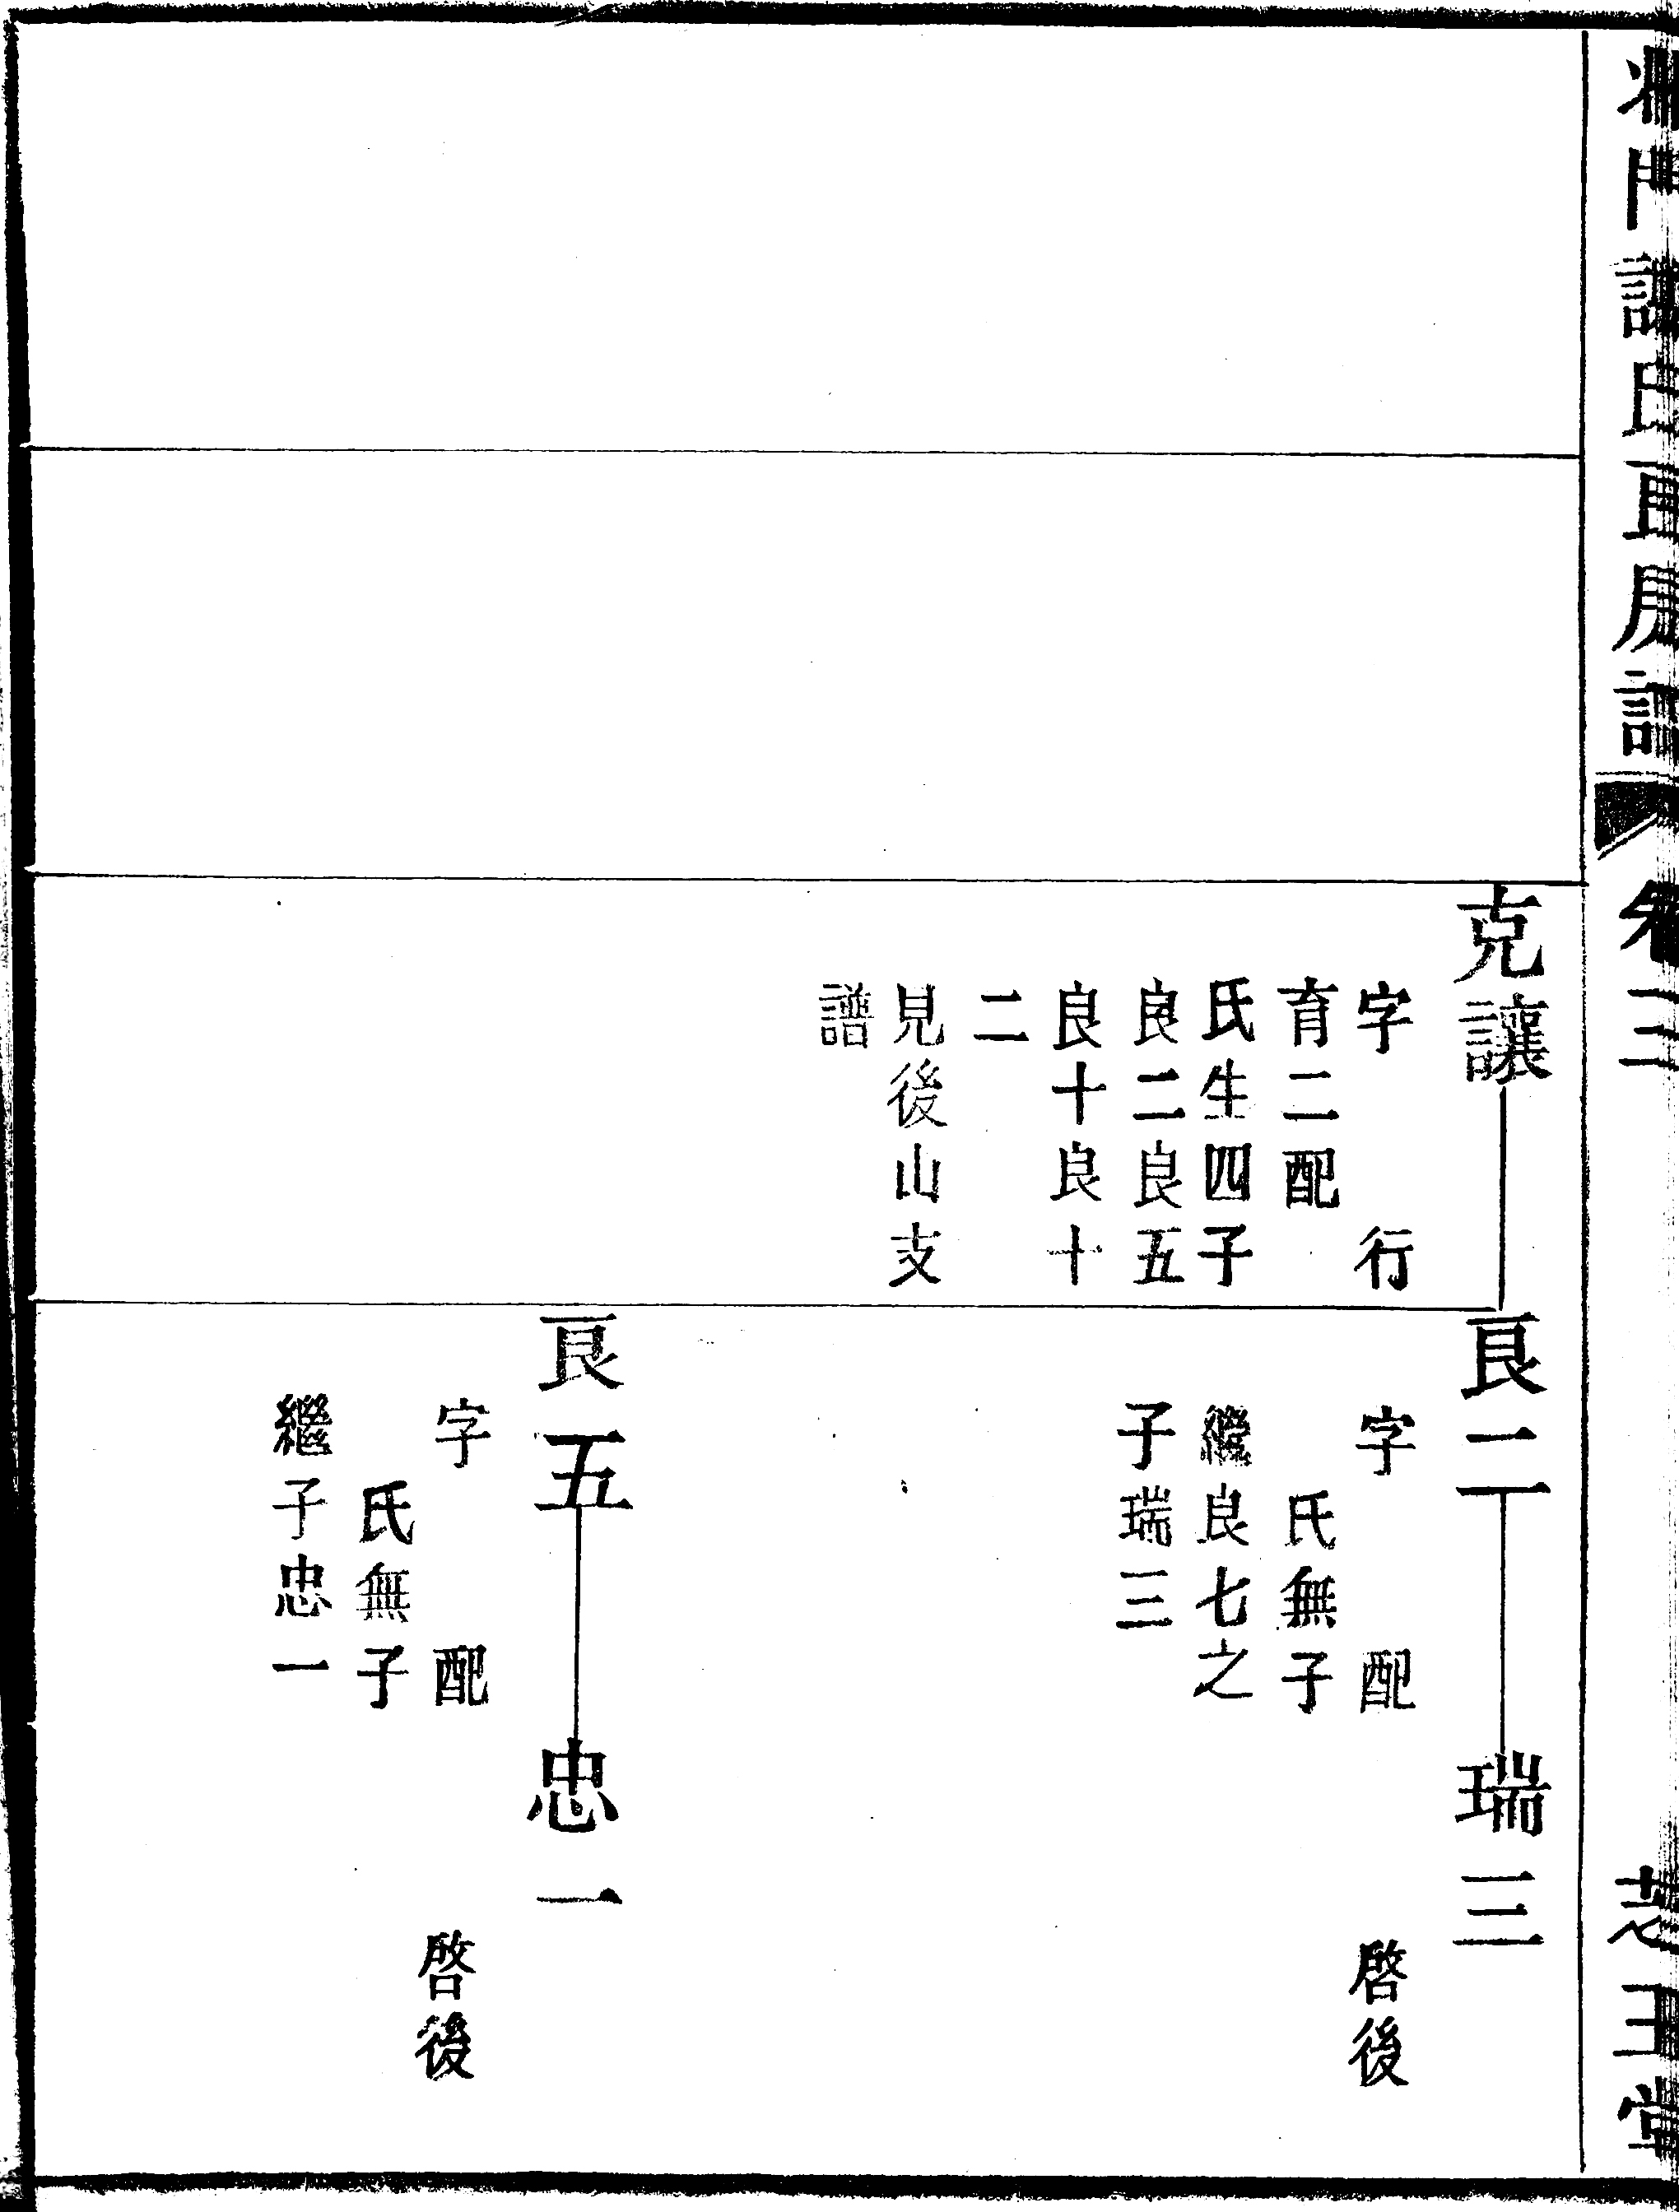 卷三
克讓
字　行
育二配
氏生四子
良二良五
良十良十
二
見後山支
譜
良二
字　配
氏無子
繼良七之
子瑞三
良五
字　配
氏無子
繼子忠一
瑞三
啓後
忠一
啓後